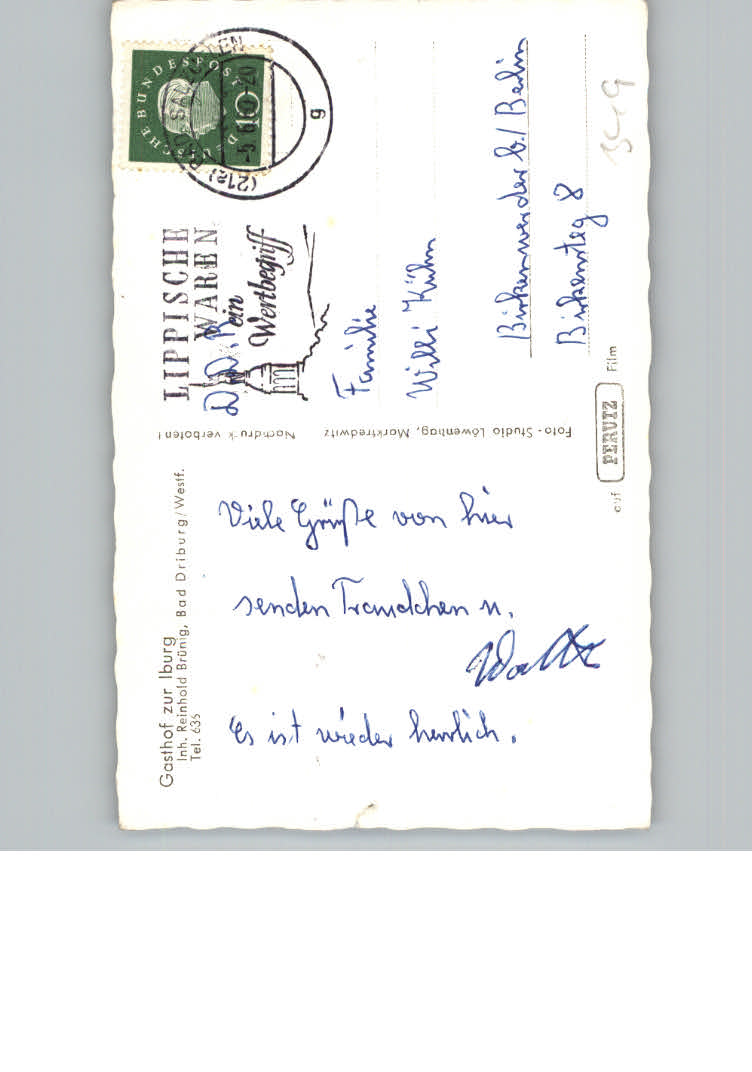 Gasthof zur Iburg
Inh. Reinhold Brünig, Bad Driburg/Westf.
Tel. 635
Viele Grüße von hier
senden Traudchen u.
Walter
Es ist wieder herrlich.
Foto-Studio Löwenhag, Marktredwitz
Nachdruck verboten!
auf PERUTZ Film
LIPPISCHE
WAREN
ein
Wertbegriff
DEUTSCHE BUNDESPOST
10
(21a) BAD SALZUFLEN
-5.6.60-20
g
D.D.R.
Familie
Willi Kühn
Birkenwerder b./Berlin
Birkensteg 8